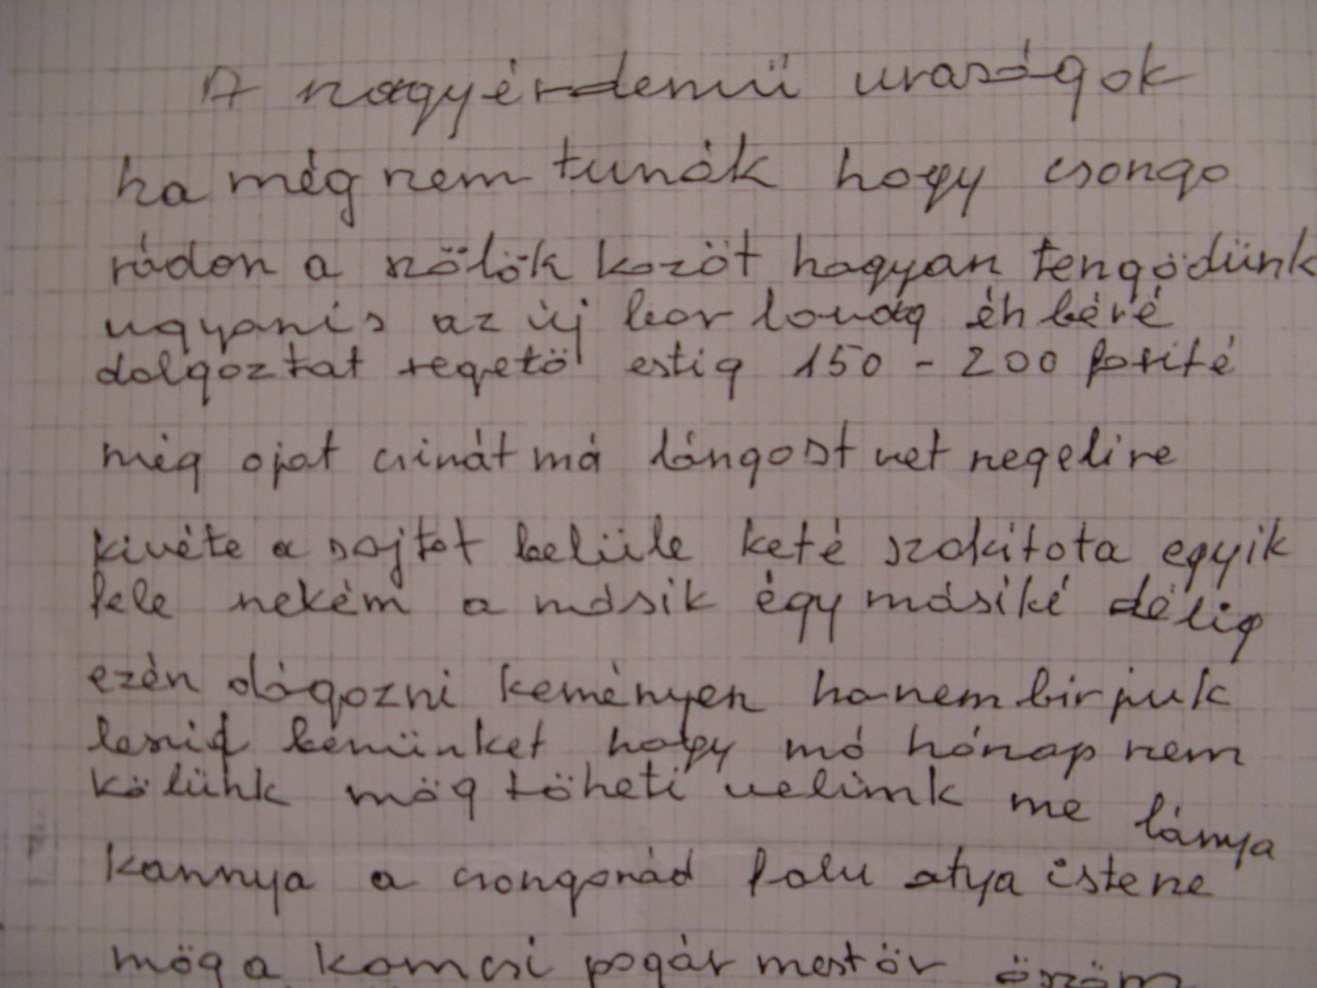 A nagyérdemü uraságok
ha még nem tunák hogy csongo
rádon a szölök kozöt hogyan tengödünk
ugyanis az új kor lovag éh béré
dolgoztat regetö estig 150 - 200 forité
még ojat csinát má lángost vet reggelire
kivéte a sajtot belüle keté szakitota egyik
fele nekém a másik égy másiké délig
ezén dógozni keményen ha nem birjuk
leszid bénünket hogy mó hónap nem
kölünk mög töheti velünk me lánya
kannya a csongorád falu atya istene
mög a komcsi pogár mestör öszöm